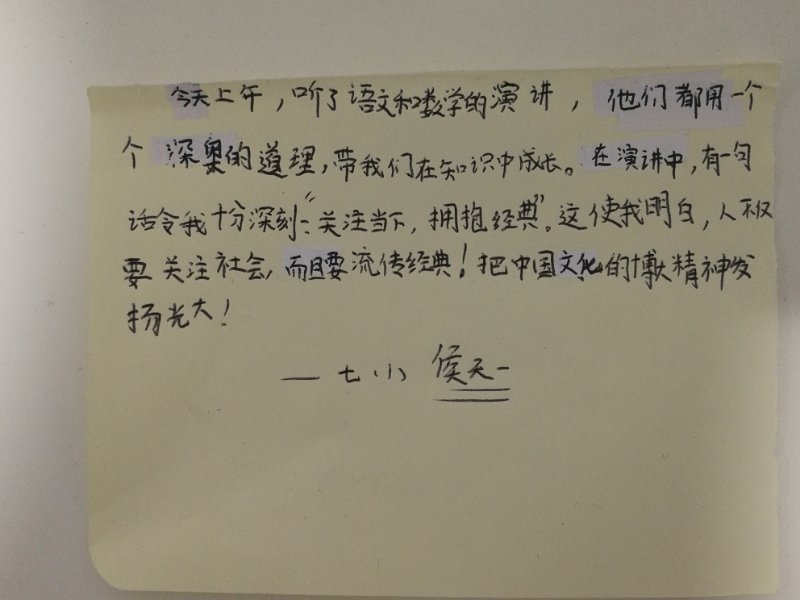 今天上午，听了语文和数学的演讲，他们都用一个
个深奥的道理，带我们在知识中成长。在演讲中，有一句
话令我十分深刻：“关注当下，拥抱经典”。这使我明白，人不仅
要关注社会，而且要流传经典！把中国文化的博大精神发
扬光大！
——七小 侯天一